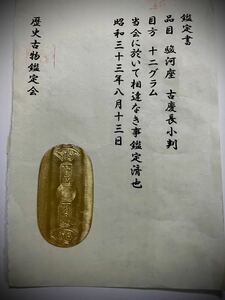 鑑定書
品目 駿河座 古慶長小判
目方 十二グラム
当会に於いて相違なき事鑑定済也
昭和三十三年八月十三日
歴史古物鑑定会